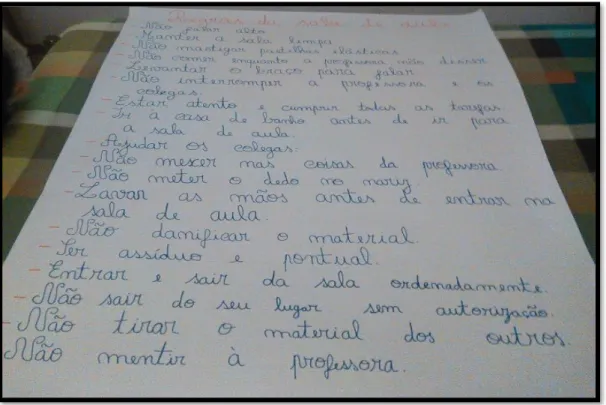 Regras da sala de aula
- Não falar alto
- Manter a sala limpa
- Não mastigar pastilhas elásticas
- Não comer enquanto a professora não disser
- Levantar o braço para falar
- Não interromper a professora e os
colegas.
- Estar atento e cumprir todas as tarefas
- Ir à casa de banho antes de ir para
a sala de aula.
- Ajudar os colegas.
- Não mexer nas coisas da professora
- Não meter o dedo no nariz
- Lavar as mãos antes de entrar na
sala de aula.
- Não danificar o material.
- Ser assíduo e pontual.
- Entrar e sair da sala ordenadamente.
- Não sair do seu lugar sem autorização.
- Não tirar o material dos outros.
Não mentir à professora.